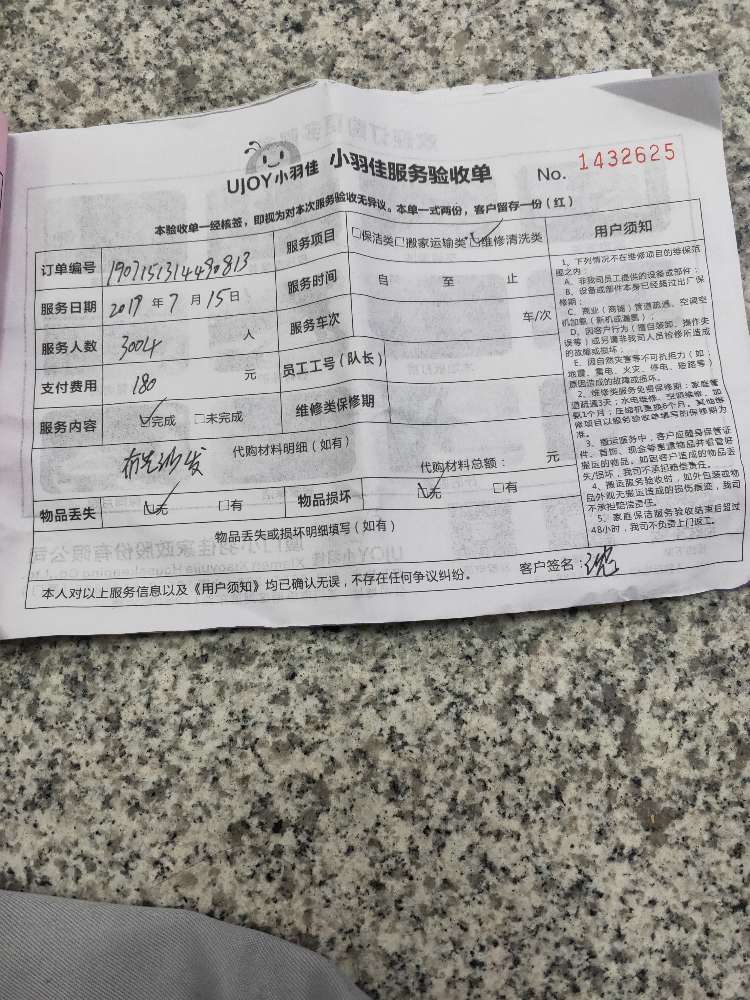 UJOY小羽佳 小羽佳服务验收单 No. 1432625
本验收单一经核签，即视为对本次服务验收无异议。本单一式两份，客户留存一份（红）
订单编号 1907151314490813
服务项目 □保洁类□搬家运输类□维修清洗类
服务日期 2019 年 7 月 15 日
服务时间 自 至 止
服务人数 3004 人
服务车次 车/次
支付费用 180 元
员工工号（队长）
服务内容 □完成 □未完成
维修类保修期
代购材料明细（如有）
布艺沙发
代购材料总额： 元
物品丢失 □无 □有 物品损坏 □无 □有
物品丢失或损坏明细填写（如有）
本人对以上服务信息以及《用户须知》均已确认无误，不存在任何争议纠纷。 客户签名：
用户须知
1、下列情况不在维修项目的维保范
围之内：
A、非我司员工提供的设备或部件；
B、设备或部件本身已经超过出厂保
修期；
C、商业（商铺）管道疏通、空调空
机加氨（新机或漏氟）；
D、因客户行为（擅自装卸、操作失
误等）或另请非我司人员检修所造成
的故障或损坏；
E、因自然灾害等不可抗拒力（如：
地震、雷电、火灾、停电、短路等）
原因造成的故障或损坏。
2、维修类服务免费保修期：家庭管
道疏通3天；水电维修、空调维修、加
氨1个月；压缩机更换6个月。其他等
修项目以服务验收单填写的保修期为
准。
3、搬运服务中，客户应随身保管证
件、首饰、现金等贵重物品并看管好
搬运的物品。如因客户造成的物品丢
失/损坏，我司不承担赔偿责任。
4、搬运服务验收时，如外包装或物
品外观无搬运造成的损伤痕迹，我司
不承担赔偿责任。
5、家庭保洁服务验收结束后超过
48小时，我司不负责上门返工。